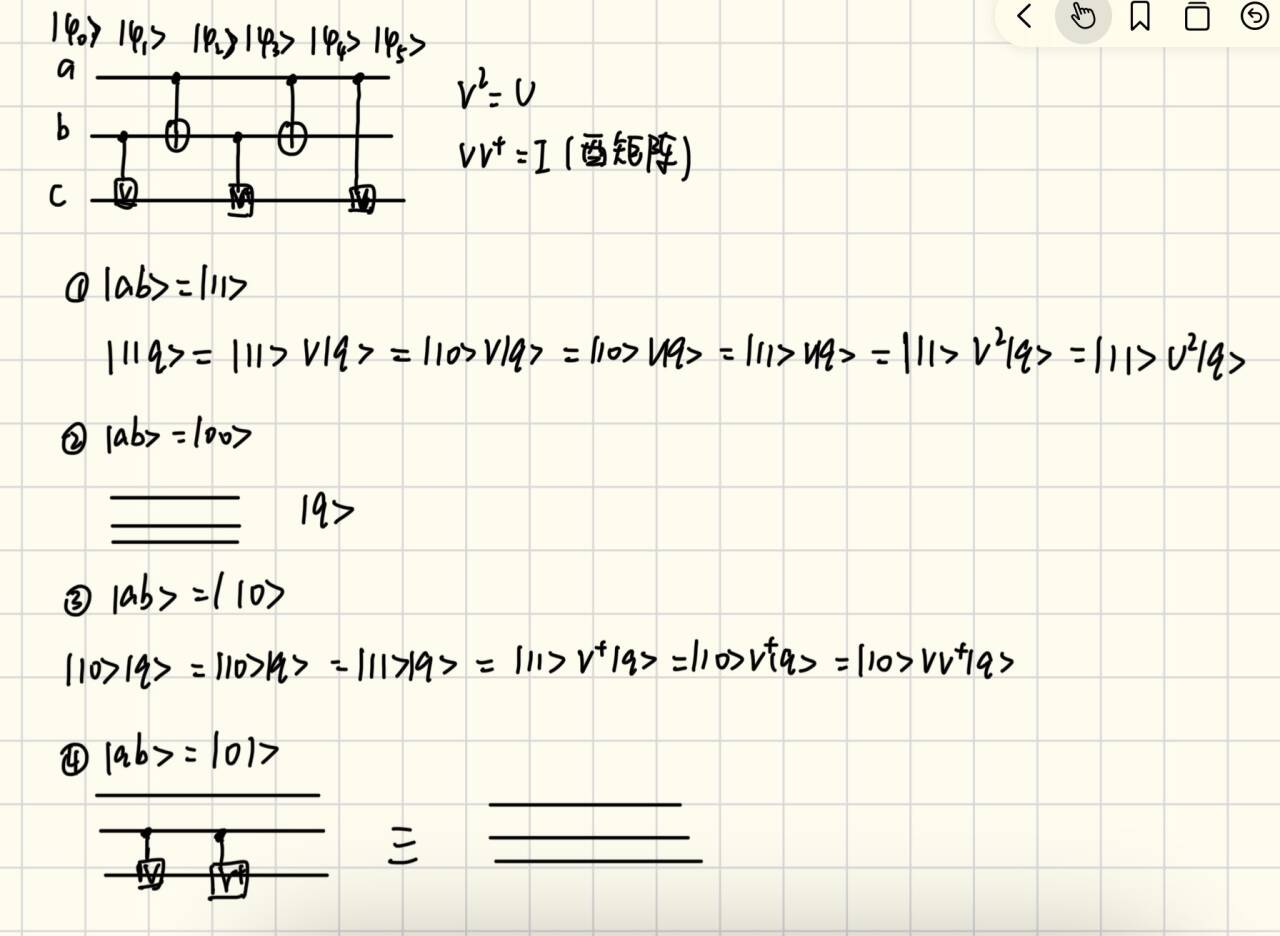 |φ₀> |φ₁> |φ₂> |φ₃> |φ₄> |φ₅>
a
b
c
V V† V
V² = U
VV† = I (酉矩阵)
① |ab> = |11>
|11q> = |11> V|q> = |10> V|q> = |10> V|q> = |11> V|q> = |11> V²|q> = |11> U²|q>
② |ab> = |00>
|q>
③ |ab> = |10>
|10>|q> = |10>|q> = |11>|q> = |11> V†|q> = |10> V†|q> = |10> VV†|q>
④ |ab> = |01>
V V† ≡